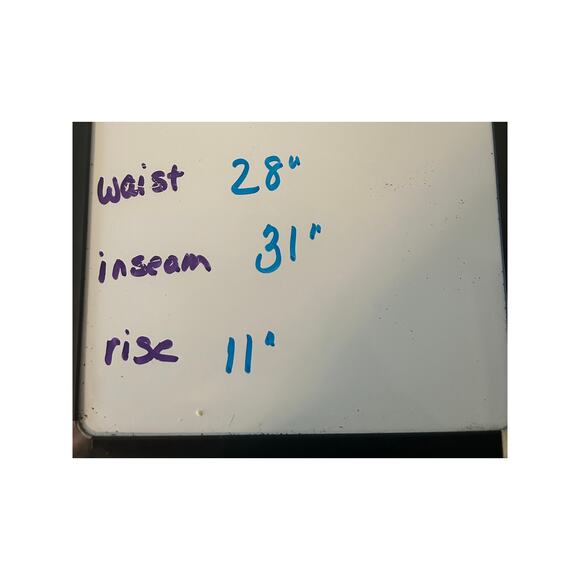 waist 28"
inseam 31"
rise 11"